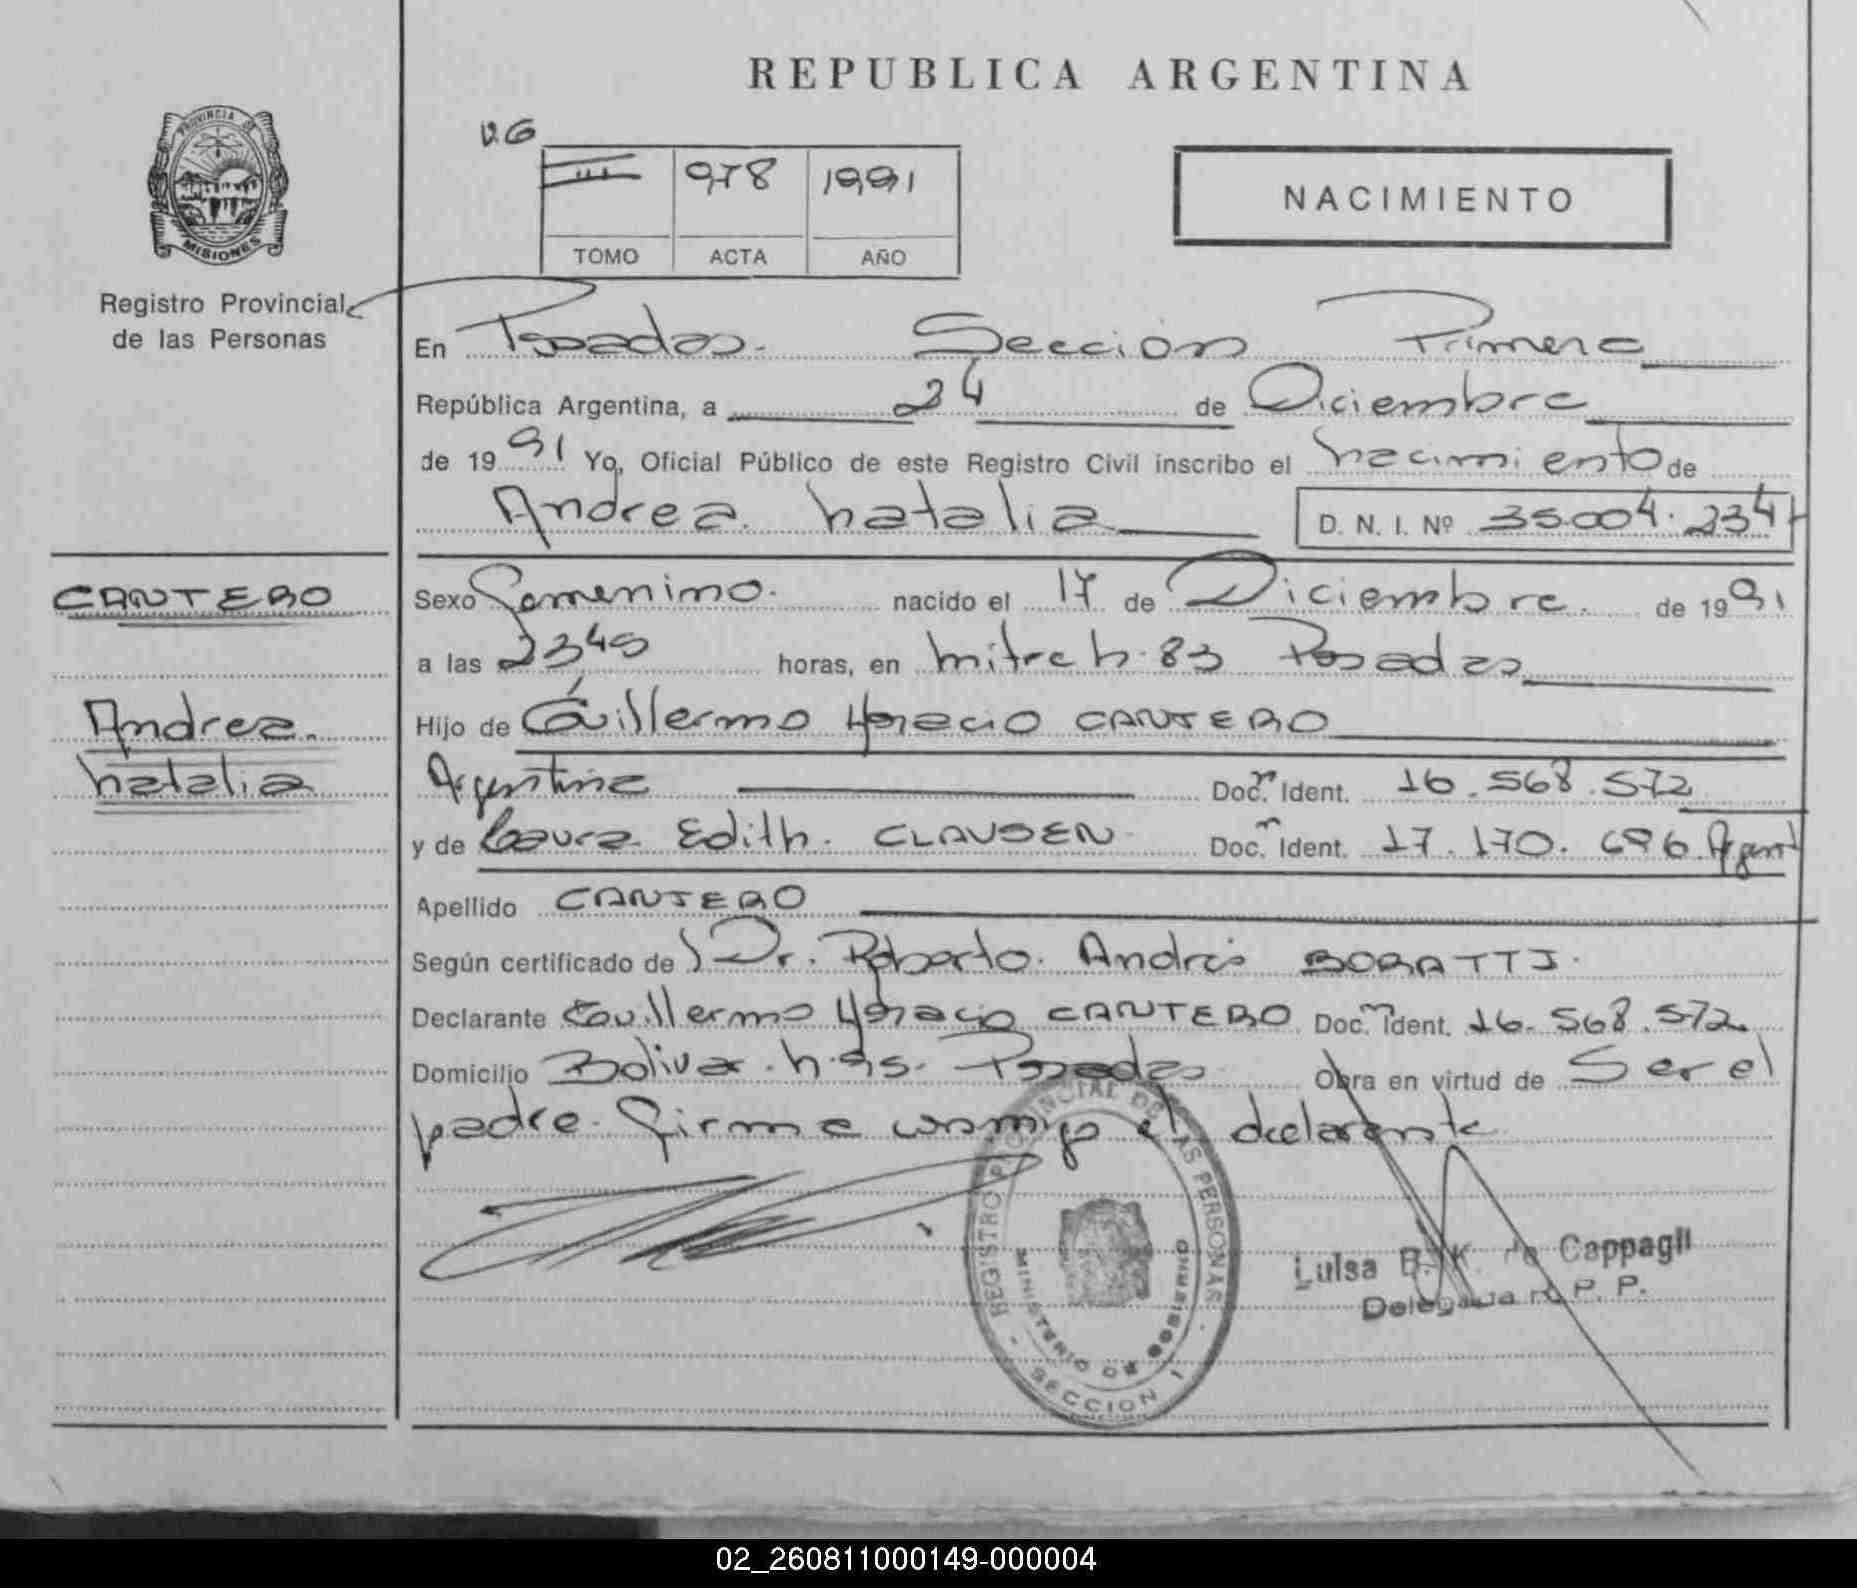 REPUBLICA ARGENTINA
PROVINCIA DE
MISIONES
Registro Provincial
de las Personas
V.G
III 978 1991
TOMO ACTA AÑO
NACIMIENTO
En Posadas. Sección Primera
República Argentina, a 24 de Diciembre
de 1991 Yo, Oficial Público de este Registro Civil inscribo el nacimiento de
Andrea Natalia D. N. I. Nº 35.004.234
CANTERO
Andrea
Natalia
Sexo Femenino. nacido el 17 de Diciembre. de 1991
a las 2345 horas, en Mitre N. 83 Posadas
Hijo de Guillermo Horacio CANTERO
Argentina Doc. Ident. 16.568.572
y de Laura Edith. CLAUSEN Doc. Ident. 17.170.696 Argent
Apellido CANTERO
Según certificado de Dr. Roberto Andrés BORATTI.
Declarante Guillermo Horacio CANTERO Doc. Ident. 16.568.572
Domicilio Bolivar. N. Posadas Obra en virtud de Ser el
padre. Firma conmigo el declarante
REGISTRO PROVINCIAL DE LAS PERSONAS
MINISTERIO DE GOBIERNO
SECCION 1
Luisa B. K. de Cappagli
Delegada R. P. P.
02_260811000149-000004